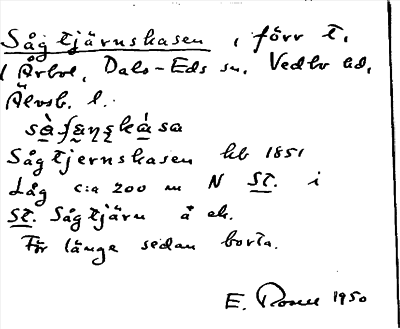 Sågtjärnskasen, förr t.
/ Årbol, Dals-Eds sn. Vedbo hd,
Älvsb. l.
Sågtjernskasen hb 1851
Låg c:a 200 m N St. i
St. Sågtjärn å ek.
För länge sedan borta.
E. Rosell 1950